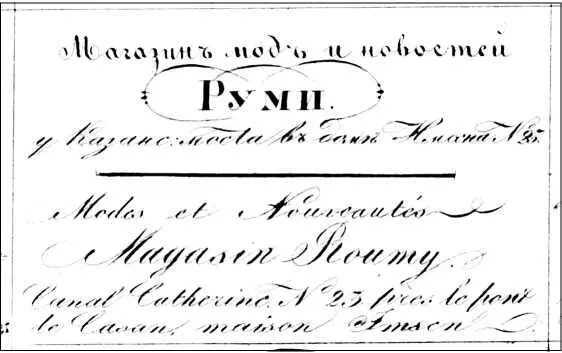 Магазинъ модъ и новостей
РУМИ.
у Казанс: моста въ домѣ Имзена № 25.
Modes et Nouveautés
Magasin Roumy.
Canal Catherine, N 25 près le pont
de Casan, maison Imsen